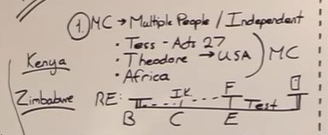 1. MC → Multiple People / Independent
• Tess - Acts 27
• Theodore → USA
MC
• Africa
Kenya
Zimbabwe
RE:
IK
F
Test
B C E